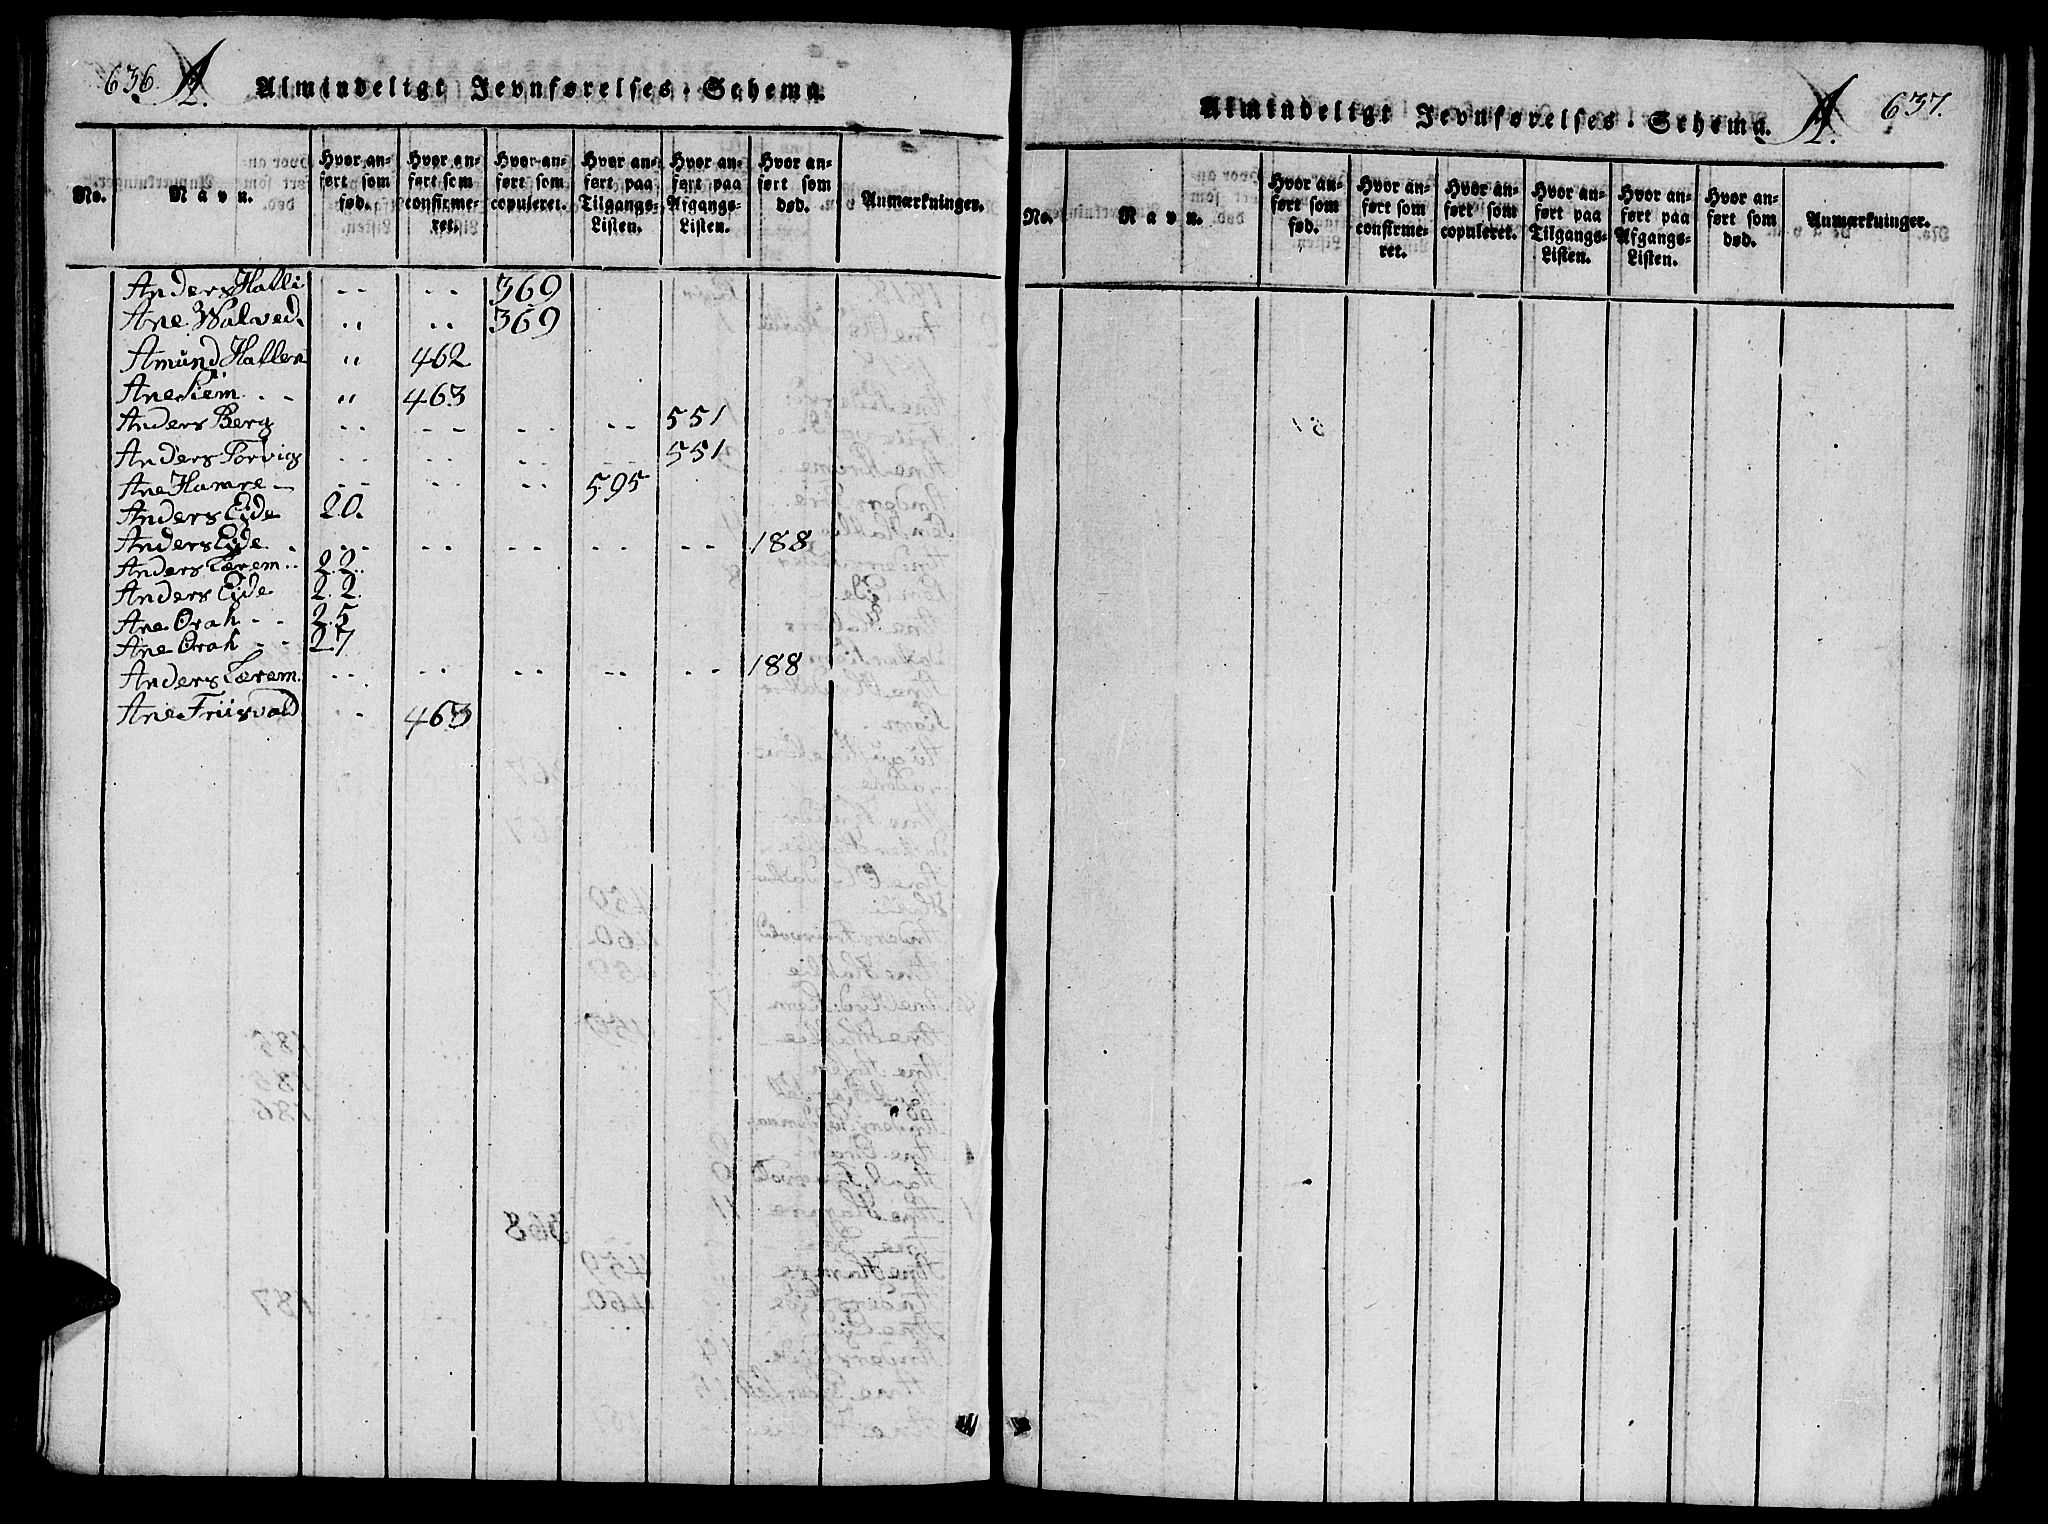 636. A.
Almindeligt Jevnførelses-Schema.
No. Navn. Hvor anført som fød. Hvor anført som confirmeret. Hvor anført som copuleret. Hvor anført paa Tilgangs-Listen. Hvor anført paa Afgangs-Listen. Hvor anført som død. Anmærkninger.
Anders Hatli .. .. 369
Ane Walved. .. .. 369
Amund Hatlen .. 462
Ane Siem .. .. 463
Anders Berg .. .. .. .. 551
Anders Torvigs .. .. .. .. 551
Ane Hamre - .. .. .. 595
Anders Eide 20.
Anders Eide .. .. .. .. .. 188
Anders Tærem .. 22.
Anders Eide 22.
Ane Orah .. 25
Ane Orah .. 27
Anders Tærem. .. .. .. .. .. 188
Ane Friisvold .. 463
Almindeligt Jevnførelses-Schema. A. 637.
No. Navn. Hvor anført som fød. Hvor anført som confirmeret. Hvor anført som copuleret. Hvor anført paa Tilgangs-Listen. Hvor anført paa Afgangs-Listen. Hvor anført som død. Anmærkninger.